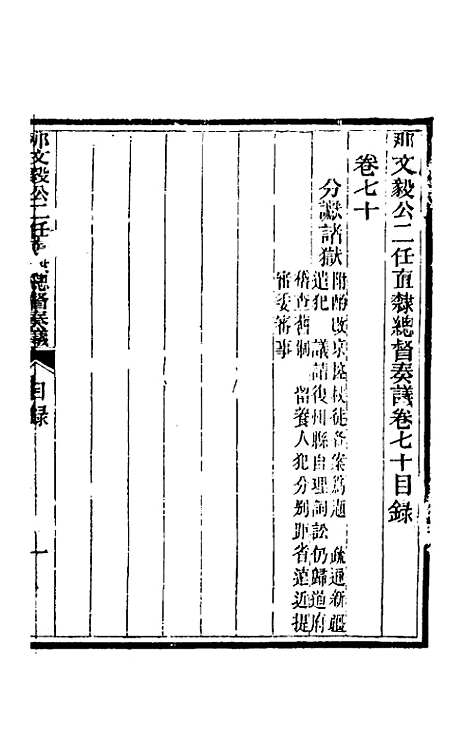 那文毅公二任直隸總督奏議卷七十目錄
卷七十
分讞諸獄
附酌改京控杖徒咨案爲題　疏通新疆
遣犯　議請復州縣自理詞訟仍歸道府
稽查舊制　留養人犯分別距省遠近提
審委審事
那文毅公二任直隸總督奏議
目錄
一